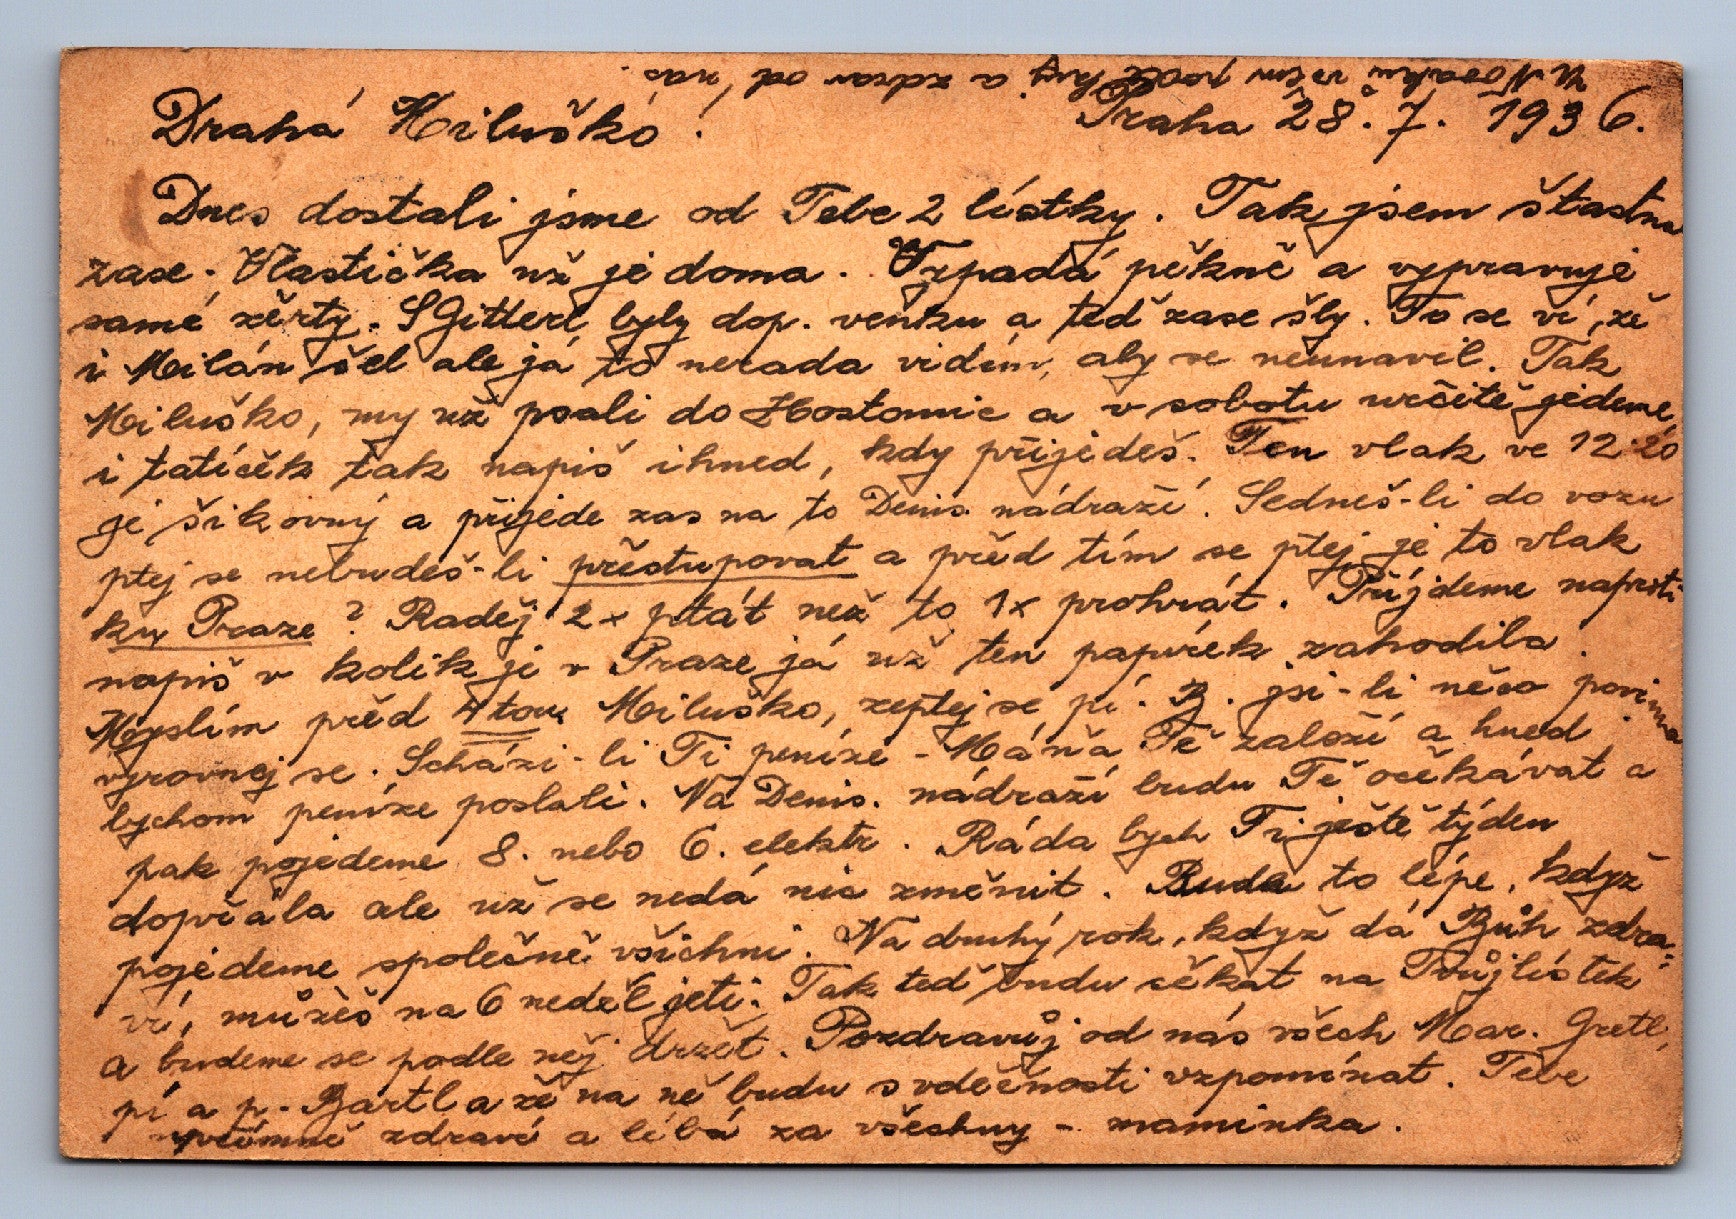 Praha 28. 7. 1936.
Drahá Miluško!
Dnes dostali jsme od Tebe 2 lístky. Tak jsem šťastna
zase. Vlastička už je doma. Vypadá pěkně a vypravuje
samé žerty. S Gitterl byly dop. venku a teď zase šly. To se ví, že
i Milán šel ale já to nerada vidím, aby se neunavil. Tak
Miluško, my už psali do Hostomic a v sobotu určitě jedeme,
i tatíček tak napiš ihned, kdy přijedeš. Ten vlak ve 12.20
je šikovný a přijede zas na to Denis nádraží. Sedneš-li do vozu
ptej se nebudeš-li přestupovat a před tím se ptej, je to vlak
ku Praze? Raděj 2x ptát než to 1x prohrát. Příjdeme naproti
napiš v kolik je v Praze já už ten papírek zahodila.
Myslím před 4tou. Miluško, zeptej se pí. B. jsi-li něco povinna
vyrovnej se. Schází-li Ti peníze - Máňa Tě založí a hned
bychom peníze poslali. Na Denis. nádraží budu Tě očekávat a
pak pojedeme 8. nebo 6. elektr. Ráda bych Ti ještě týden
dopřála ale už se nedá nic změnit. Bude to lépe, když
pojedeme společně všichni. Na druhý rok, když dá Bůh zdra=
ví, můžeš na 6 neděl jeti. Tak teď budu čekat na Tvůj lístek
a budeme se podle něj držet. Pozdravuj od nás všech Mar. Gretl,
pí a p. Bartl a že na ně budu s vděčností vzpomínat. Tebe
upřímně zdraví a líbá za všechny - maminka.